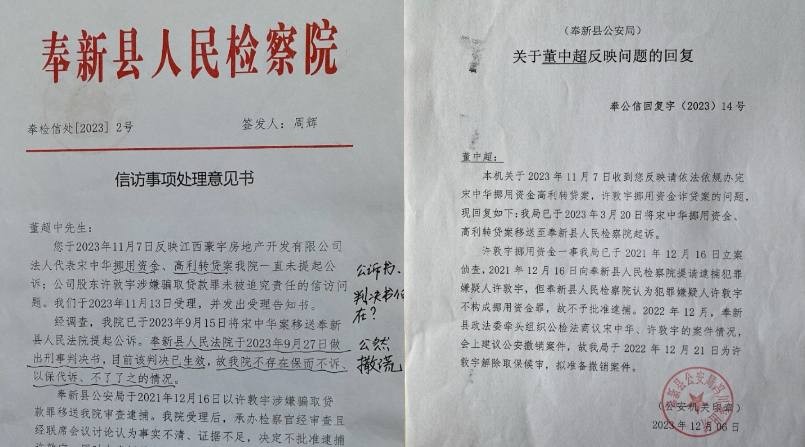 奉新县人民检察院
奉检信处[2023] 2号 签发人：周辉
信访事项处理意见书
董超中先生：
您于2023年11月7日反映江西豪宇房地产开发有限公司
法人代表宋中华挪用资金、高利转贷案我院一直未提起公
诉；公司股东许敦宇涉嫌骗取贷款罪未被追究责任的信访问
题。我们于2023年11月13日受理，并发出受理告知书。
经调查，我院已于2023年9月15日将宋中华案移送奉新
县人民法院提起公诉。奉新县人民法院于2023年9月27日做
出刑事判决书，目前该判决已生效，故我院不存在保而不诉、
以保代诉、不了了之的情况。
奉新县公安局于2021年12月16日以许敦宇涉嫌骗取贷
款罪移送我院审查逮捕。我院受理后，承办检察官经审查且
经联席会议讨论认为事实不清、证据不足，决定不批准逮捕
公诉书、
判决书何
在？
公然
撒谎
（奉新县公安局）
关于董中超反映问题的回复
奉公信回复字（2023）14号
董中超：
本机关于2023年11月7日收到您反映请依法依规办完
宋中华挪用资金高利转贷案，许敦宇挪用资金诈贷案的问题，
现回复如下：我局已于2023年3月20日将宋中华挪用资金、
高利转贷案移送至奉新县人民检察院起诉。
许敦宇挪用资金一事我局已于2021年12月16日立案
侦查，2021年12月16日向奉新县人民检察院提请逮捕犯罪
嫌疑人许敦宇，但奉新县人民检察院认为犯罪嫌疑人许敦宇
不构成挪用资金罪，故不予批准逮捕。2022年12月，奉新
县政法委牵头组织公检法商议宋中华、许敦宇的案件情况，
会上建议公安撤销案件，故我局于2022年12月21日为许
敦宇解除取保候审，拟准备撤销案件。
（公安机关印章）
2023年12月06日